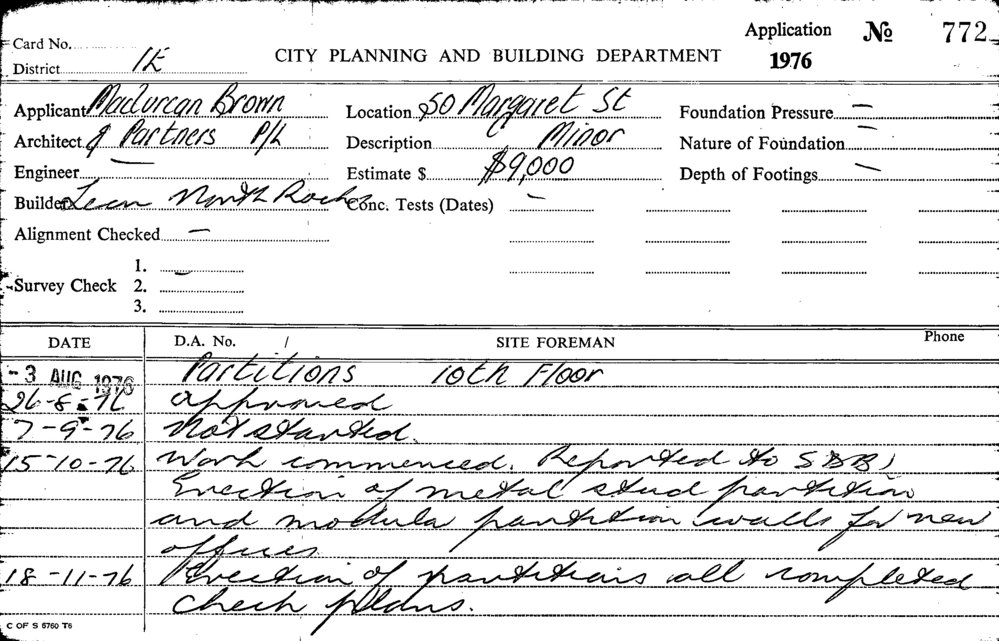 Application № 772
Card No.
District 1E
CITY PLANNING AND BUILDING DEPARTMENT
1976
Applicant Maclurcan Brown
Location 50 Margaret St
Foundation Pressure —
Architect & Partners P/L
Description Minor
Nature of Foundation —
Engineer —
Estimate $ $9,000
Depth of Footings —
Builder North Rocks
Conc. Tests (Dates) —
Alignment Checked —
Survey Check
1.
2.
3.
DATE D.A. No. / SITE FOREMAN Phone
-3 AUG 1976 Partitions 10th Floor
26-8-76 approved
7-9-76 Not started.
15-10-76 Work commenced. Reported to
Erection of metal stud partition
and modula partition walls for new
offices
18-11-76 Erection of partitions all completed
Check plans.
C OF S 5760 T6